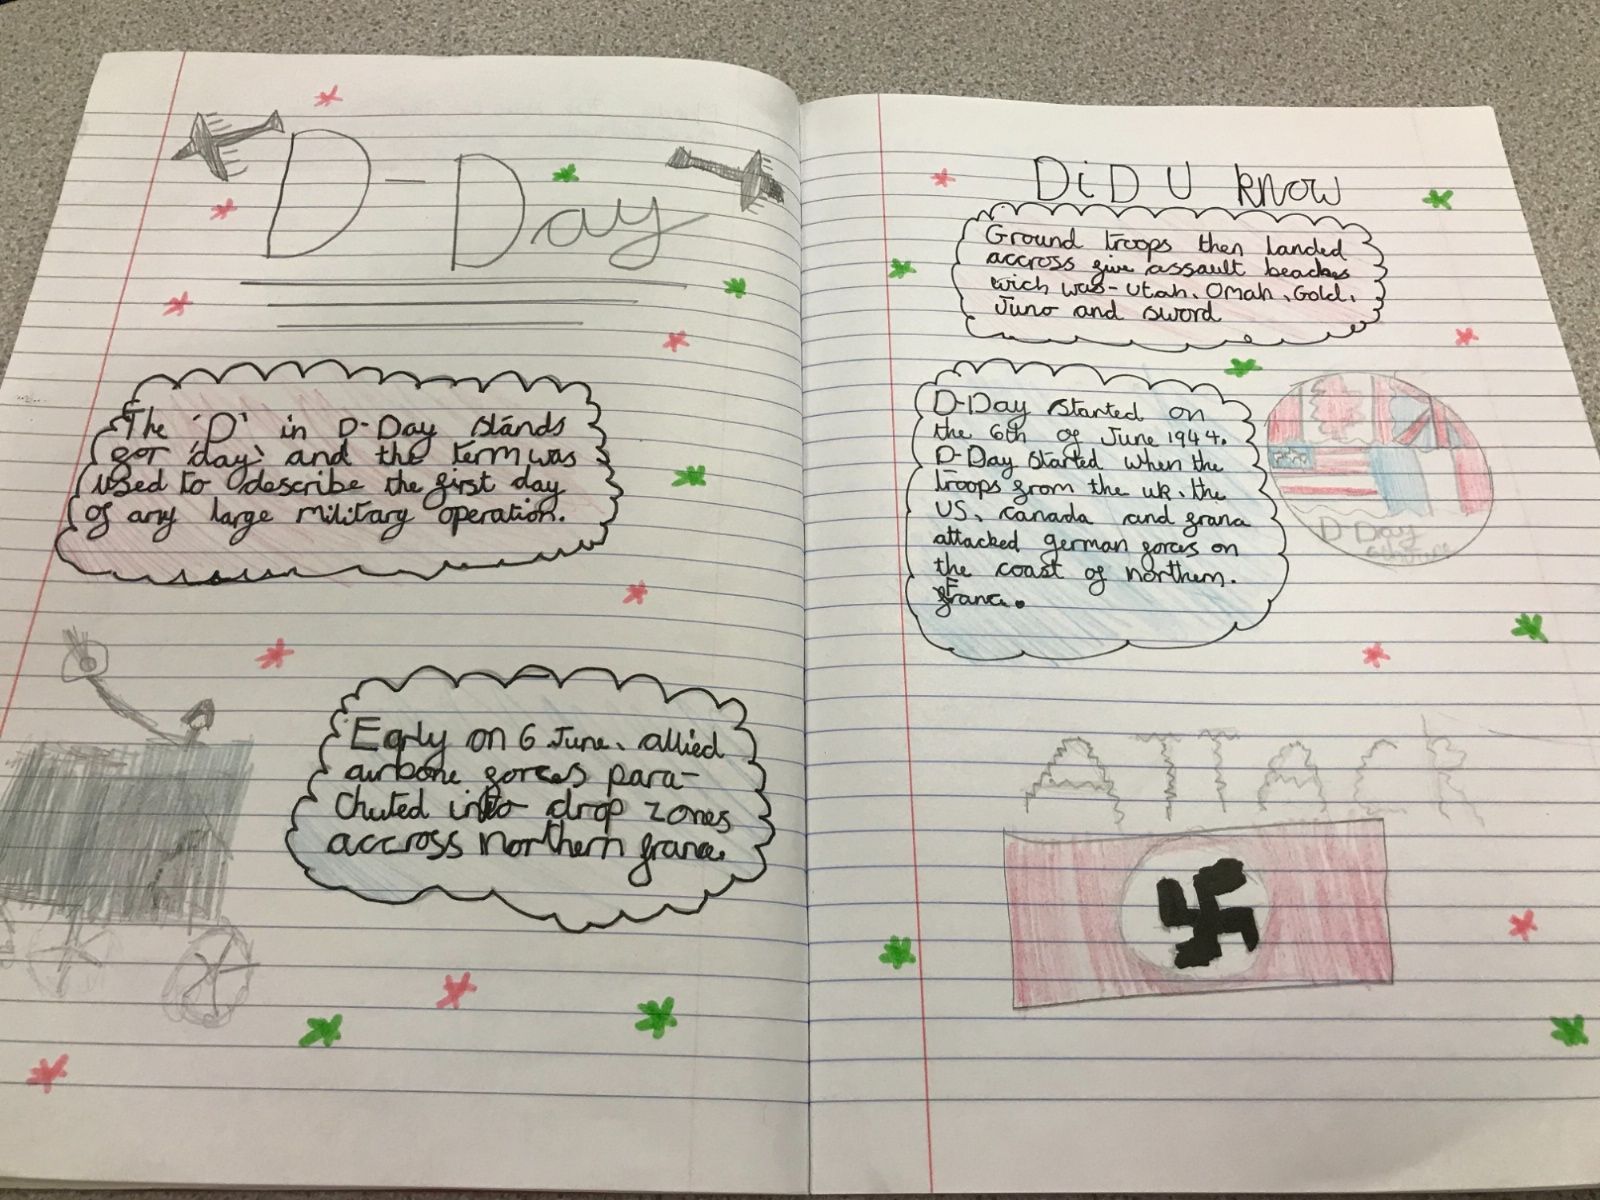 D-Day
The 'D' in D-Day stands
gor 'day' and the term was
used to describe the girst day
of any large military operation.
Early on 6 June, allied
airbone gorces para-
chuted into drop zones
accross northern grance.
DiD U know
Ground troops then landed
accross give assault beaches
wich was- Utah, Omah, Gold,
Juno and sword
D-Day started on
the 6th of June 1944.
D-Day started when the
troops grom the uk, the
US, canada and grana
attacked german gorces on
the coast of northern.
france.
D-Day
ATTACK